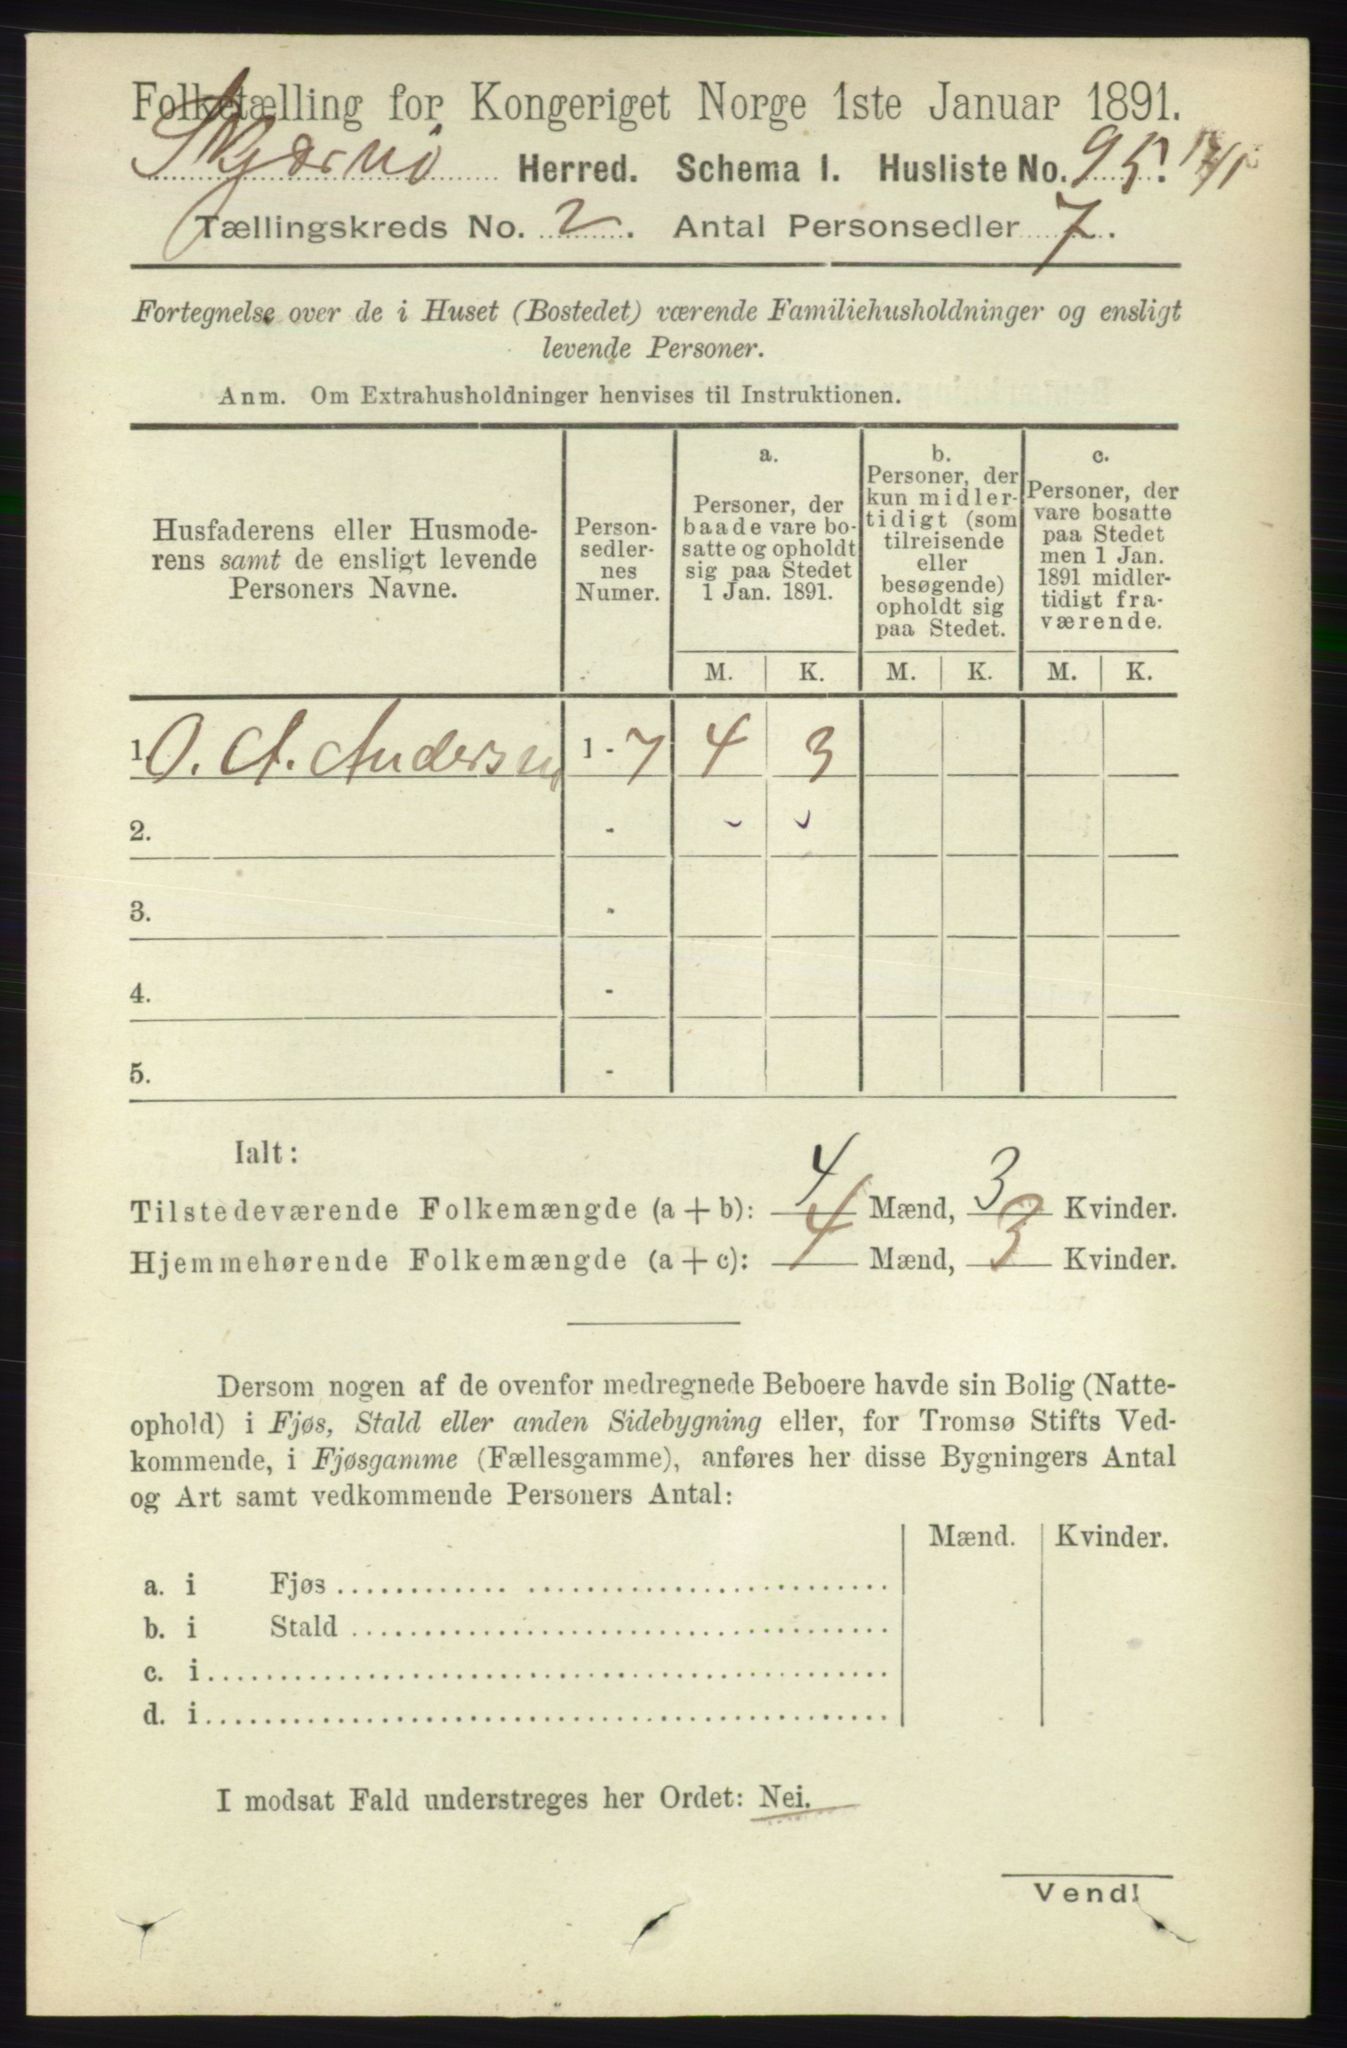 Folketælling for Kongeriget Norge 1ste Januar 1891.
Skjernø Herred. Schema I. Husliste No. 95.
Tællingskreds No. 2. Antal Personsedler 7.
Fortegnelse over de i Huset (Bostedet) værende Familiehusholdninger og ensligt
levende Personer.
Anm. Om Extrahusholdninger henvises til Instruktionen.
Husfaderens eller Husmode-
rens samt de ensligt levende
Personers Navne.
Person-
sedler-
nes
Numer.
a.
Personer, der
baade vare bo-
satte og opholdt
sig paa Stedet
1 Jan. 1891.
b.
Personer, der
kun midler-
tidigt (som
tilreisende
eller
besøgende)
opholdt sig
paa Stedet.
c.
Personer, der
vare bosatte
paa Stedet
men 1 Jan.
1891 midler-
tidigt fra-
værende.
M. K. M. K. M. K.
1 O. A. Andersen 1 - 7 4 3
2. -
3. -
4. -
5. -
Ialt:
4 3
Tilstedeværende Folkemængde (a + b): Mænd, Kvinder.
Hjemmehørende Folkemængde (a + c): 4 Mænd, 3 Kvinder.
Dersom nogen af de ovenfor medregnede Beboere havde sin Bolig (Natte-
ophold) i Fjøs, Stald eller anden Sidebygning eller, for Tromsø Stifts Ved-
kommende, i Fjøsgamme (Fællesgamme), anføres her disse Bygningers Antal
og Art samt vedkommende Personers Antal:
Mænd. Kvinder.
a. i Fjøs
b. i Stald
c. i
d. i
I modsat Fald understreges her Ordet: Nei.
Vend!